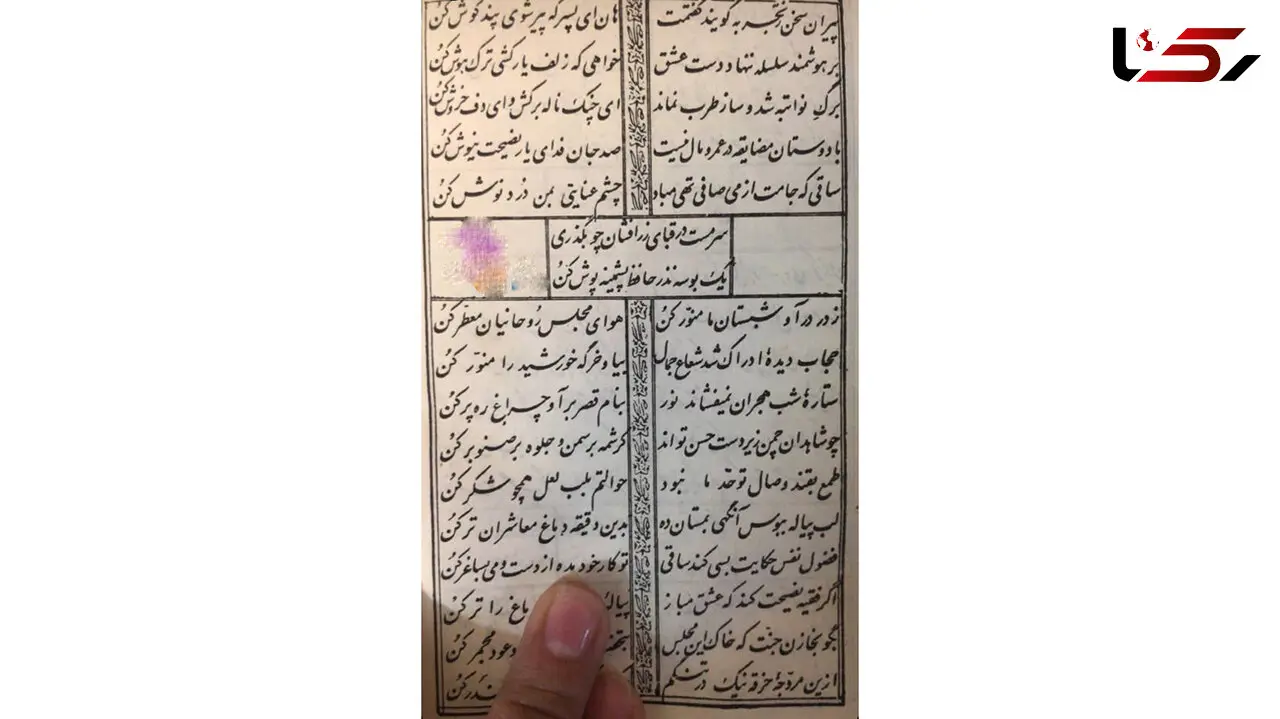 رکنا
پیران سخن ز تجربه گویند گفتمت هان ای پسر که پیر شوی پند گوش کن
بر هوشمند سلسله ننهاد دست عشق خواهی که زلف یار کشی ترک هوش کن
برگ نوا تبه شد و ساز طرب نماند ای چنگ ناله برکش و ای دف خروش کن
با دوستان مضایقه در عمر و مال نیست صد جان فدای یار نصیحت نیوش کن
ساقی که جامت از می صافی تهی مباد چشم عنایتی بمن درد نوش کن
سرمست در قبای زرافشان چو بگذری
یک بوسه نذر حافظ پشمینه پوش کن
ز در درآ و شبستان ما منور کن هوای مجلس روحانیان معطر کن
حجاب دیدهٔ ادراک شد شعاع جمال بیا و خرگه خورشید را منور کن
ستارهٔ شب هجران نمیفشاند نور ببام قصر برآ و چراغ ره برکن
چو شاهدان چمن زیر دست حسن تواند کرشمه بر سمن و جلوه بر صنوبر کن
طمع بقند وصال تو حد ما نبود حوالتم بلب لعل همچو شکر کن
لب پیاله ببوس آنگهی بمستان ده بدین دقیقه دماغ معاشران تر کن
فضول نفس حکایت بسی کند ساقی تو کار خود مده از دست و می بساغر کن
اگر فقیه نصیحت کند که عشق مباز را تر کن
بگو بخازن جنت که خاک این مجلس عود مجمر کن
ازین مزوجهٔ خرقه نیک در تنگم